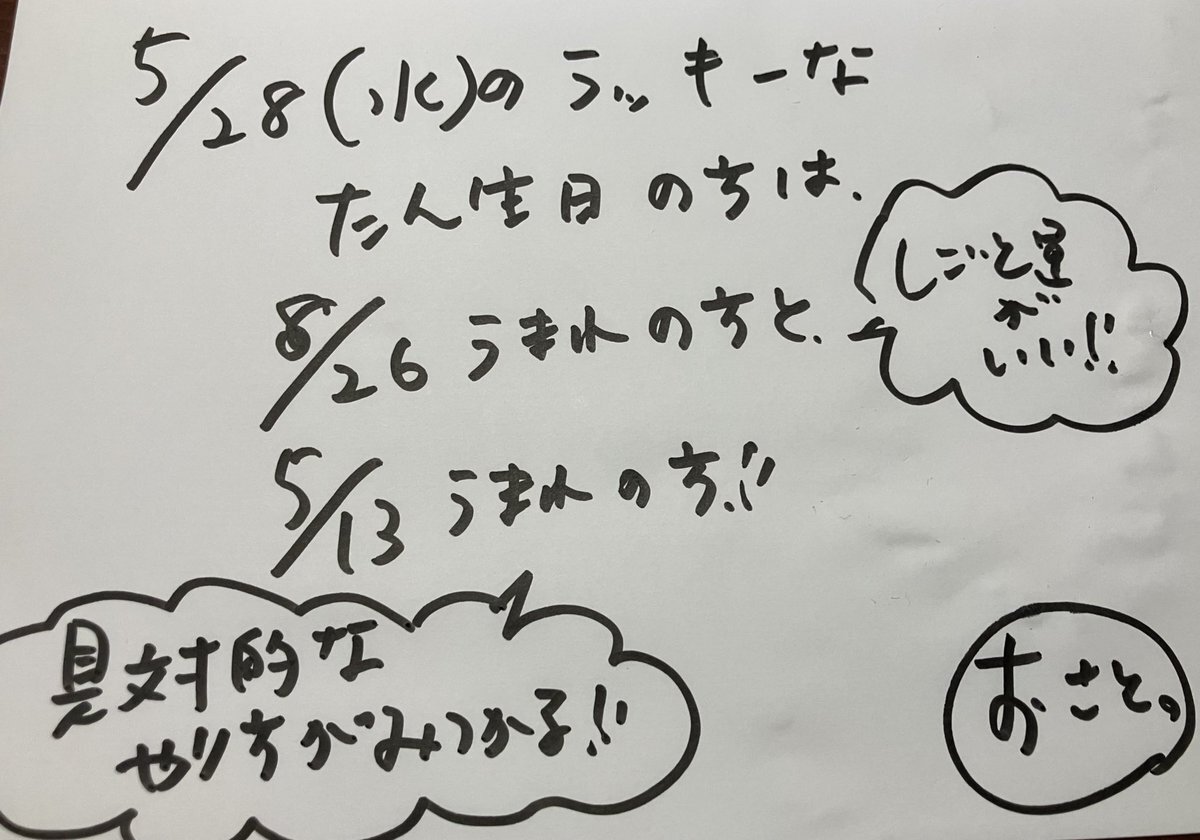 5/28(水)のラッキーな
たん生日の方は、
8/26 うまれの方と、
しごと運
が
いい!!
5/13 うまれの方!!
具対的な
やり方がみつかる!!
おさと。